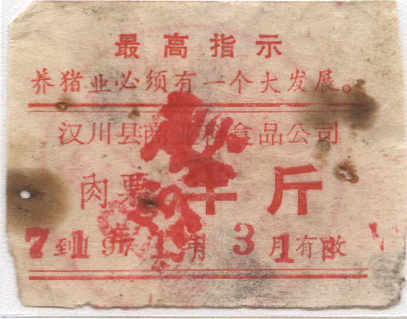 最高指示
养猪业必须有一个大发展。
汉川县食品公司
肉票 半斤
到1971 3月1日有效